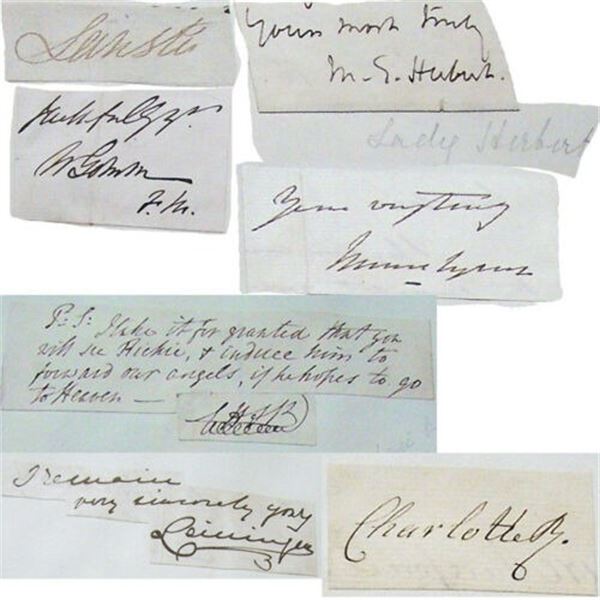 Yours most truly
M. E. Herbert.
Lady Herbert
faithfully yrs
F. M.
Yours very truly
P.S: I take it for granted that you
will see Richie, & induce him to
forward our angels, if he hopes to go
to Heaven —
I remain
very sincerely yours
Leiningen
Charlotte R.